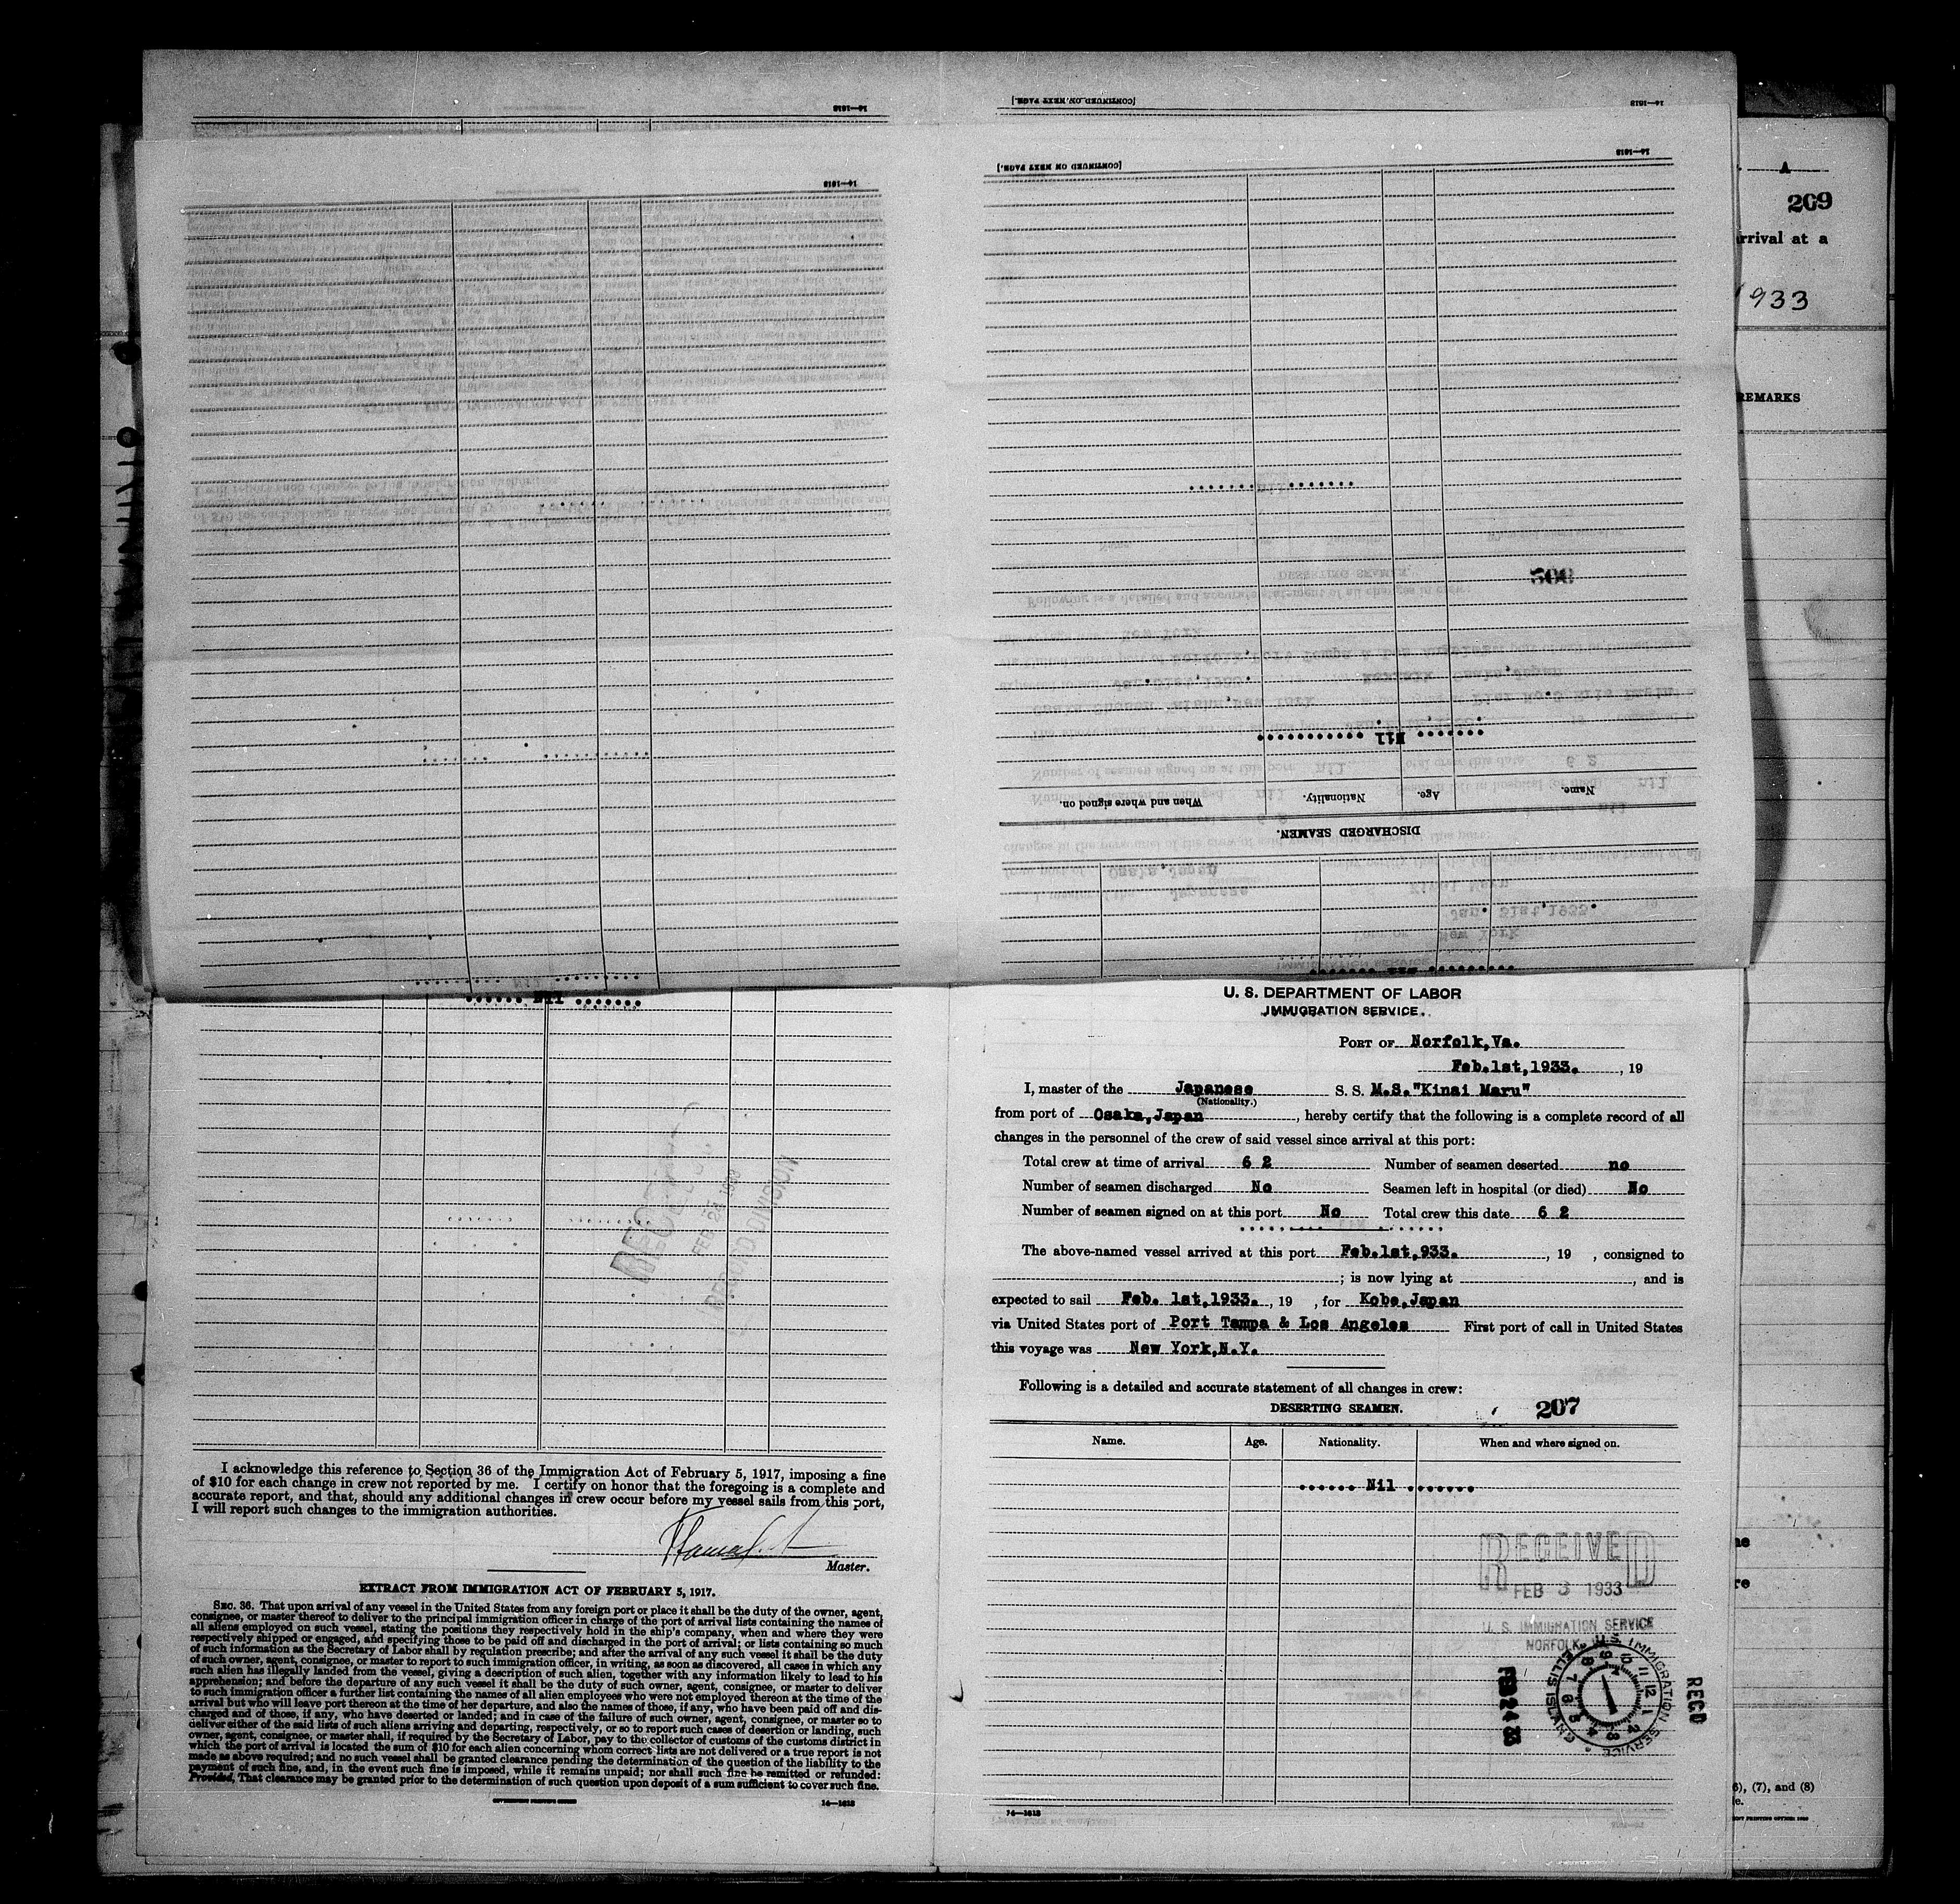 14—1613
[CONTINUED ON NEXT PAGE.]
14—1613
14—1613
[CONTINUED ON NEXT PAGE.]
14—1613
A
209
rrival at a
1933
REMARKS
nil
206
Nil
When and where signed on.
Nationality.
Age.
Name.
DISCHARGED SEAMEN.
Following is a detailed and accurate statement of all changes in crew:
DESERTING SEAMEN.
Number of seamen signed on at this port nil Total crew this date 6 2
Osaka, Japan
Japanese
Kinai Maru
Jan. 31st, 1933.
New York
Nil
U. S. DEPARTMENT OF LABOR
IMMIGRATION SERVICE.
PORT OF Norfolk,Va.
Feb.1st,1933. , 19
I, master of the Japanese S. S. M.S."Kinai Maru"
(Nationality.)
from port of Osaka,Japan , hereby certify that the following is a complete record of all
changes in the personnel of the crew of said vessel since arrival at this port:
Total crew at time of arrival 6 2 Number of seamen deserted no
Number of seamen discharged No Seamen left in hospital (or died) No
Number of seamen signed on at this port No Total crew this date 6 2
The above-named vessel arrived at this port Feb.1st,933. , 19 , consigned to
; is now lying at , and is
expected to sail Feb. 1st,1933. , 19 , for Kobe,Japan
via United States port of Port Tampa & Los Angeles First port of call in United States
this voyage was New York,N.Y.
Following is a detailed and accurate statement of all changes in crew:
DESERTING SEAMEN.
207
Name. Age. Nationality. When and where signed on.
...... Nil .......
RECEIVED
FEB 3 1933
U. S. IMMIGRATION SERVICE
NORFOLK
U.S. IMMIGRATION SERVICE
ELLIS ISLAND
FEB 24 33
REC'D
14—1613
RECEIVED
FEB 24 1933
RECORD DIVISION
I acknowledge this reference to Section 36 of the Immigration Act of February 5, 1917, imposing a fine
of $10 for each change in crew not reported by me. I certify on honor that the foregoing is a complete and
accurate report, and that, should any additional changes in crew occur before my vessel sails from this port,
I will report such changes to the immigration authorities.
Master.
EXTRACT FROM IMMIGRATION ACT OF FEBRUARY 5, 1917.
SEC. 36. That upon arrival of any vessel in the United States from any foreign port or place it shall be the duty of the owner, agent,
consignee, or master thereof to deliver to the principal immigration officer in charge of the port of arrival lists containing the names of
all aliens employed on such vessel, stating the positions they respectively hold in the ship's company, when and where they were
respectively shipped or engaged, and specifying those to be paid off and discharged in the port of arrival; or lists containing so much
of such information as the Secretary of Labor shall by regulation prescribe; and after the arrival of any such vessel it shall be the duty
of such owner, agent, consignee, or master to report to such immigration officer, in writing, as soon as discovered, all cases in which any
such alien has illegally landed from the vessel, giving a description of such alien, together with any information likely to lead to his
apprehension; and before the departure of any such vessel it shall be the duty of such owner, agent, consignee, or master to deliver
to such immigration officer a further list containing the names of all alien employees who were not employed thereon at the time of the
arrival but who will leave port thereon at the time of her departure, and also the names of those, if any, who have been paid off and dis-
charged and of those, if any, who have deserted or landed; and in case of the failure of such owner, agent, consignee, or master so to
deliver either of the said lists of such aliens arriving and departing, respectively, or so to report such cases of desertion or landing, such
owner, agent, consignee, or master shall, if required by the Secretary of Labor, pay to the collector of customs of the customs district in
which the port of arrival is located the sum of $10 for each alien concerning whom correct lists are not delivered or a true report is not
made as above required; and no such vessel shall be granted clearance pending the determination of the question of the liability to the
payment of such fine, and, in the event such fine is imposed, while it remains unpaid; nor shall such fine be remitted or refunded:
Provided, That clearance may be granted prior to the determination of such question upon deposit of a sum sufficient to cover such fine.
GOVERNMENT PRINTING OFFICE
14—1613
6), (7), and (8)